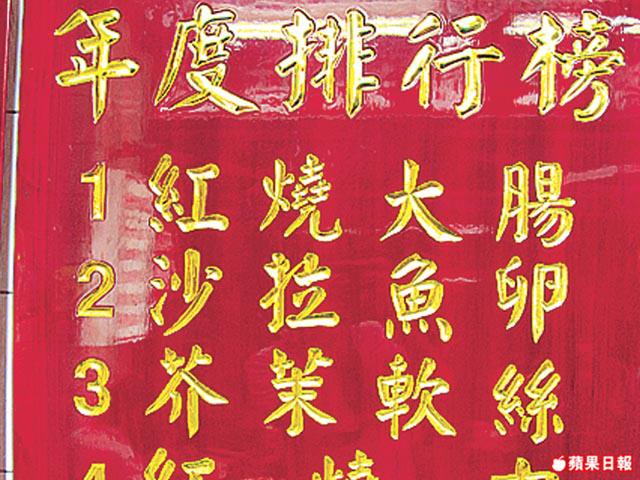 年度排行榜
1 紅燒大腸
2 沙拉魚卵
3 芥茉軟絲
4 紅燒
蘋果日報